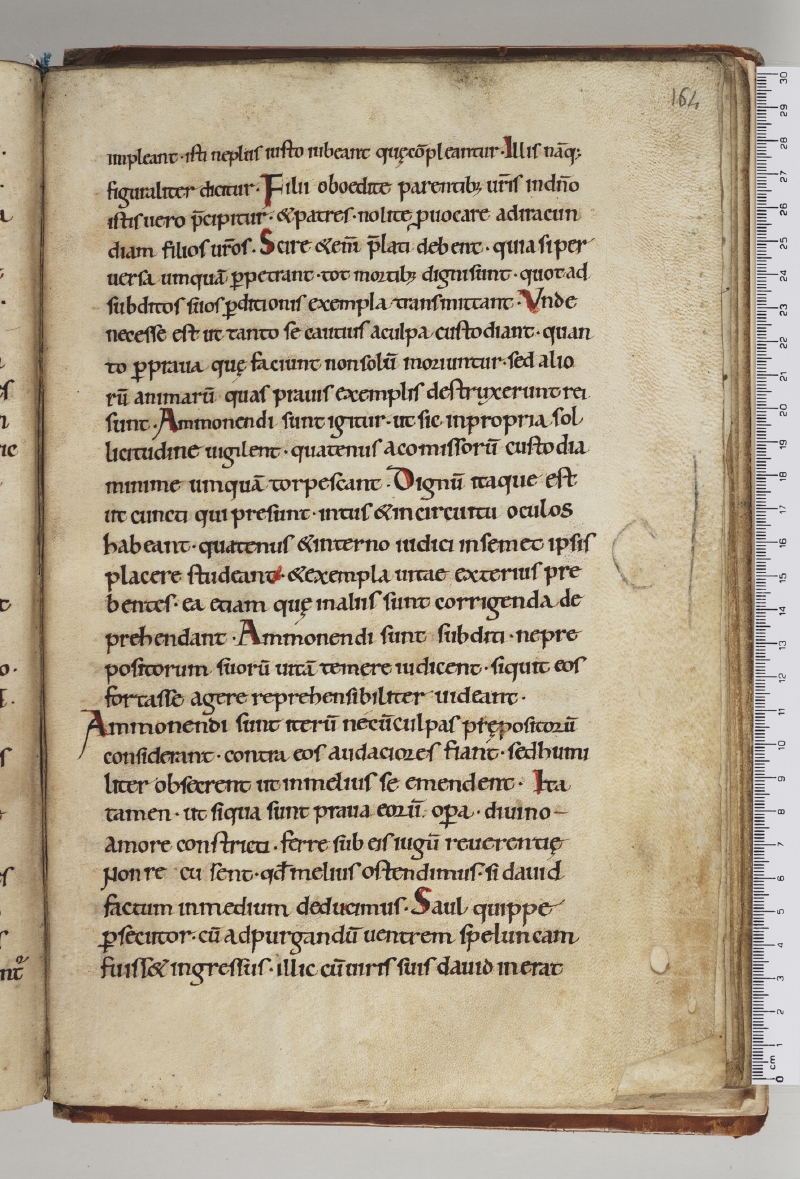 164
impleant · isti ne plus iusto iubeant quę cōpleantur · Illis nāq;
figuraliter dicitur · Filii oboedite parentib; ur̄is in dn̄o
istis uero p̄cipitur · & patres · nolite ꝓuocare ad iracun
diam filios ur̄os · Scire & enī p̄lati debent · quia si per
uersa umquā ꝑpetrant · tot mortib; digni sunt · quot ad
subditos suos ꝑditionis exempla transmittant · Vnde
necesse est ut tanto se cautius a culpa custodiant · quan
to ꝑ praua quę faciunt non solū moriuntur · sed alio
rū animarū quas prauis exemplis destruxerunt rei
sunt · Ammonendi sunt igitur · ut sic in propria sol
licitudine uigilent · quatenus a comissorū custodia
minime umquā torpescant · Dignū itaque est
ut cuncti qui presunt · intus & in circuitu oculos
habeant · quatenus & interno iudici in semet ipsis
placere studeant · & exempla uitae exterius pre
bentes · ea etiam quę in aliis sunt corrigenda de
prehendant · Ammonendi sunt subditi · ne pre
positorum suorū uitā temere iudicent · si quit eos
fortasse agere reprehensibiliter uideant ·
Ammonendi sunt iterū ne cū culpas prępositorū
considerant · contra eos audaciores fiant · sed humi
liter obsecrent ut in melius se emendent · Ita
tamen · ut si qua sunt praua eorū oꝑa · diuino
amore constricti · ferre sub eis iugū reuerentię
non re cu sent · qđ melius ostendimus · si dauid
factum in medium deducimus · Saul quippe
ꝑsecutor · cū ad purgandū uentrem speluncam
fuiss& ingressus · illic cū uiris suis dauid inerat